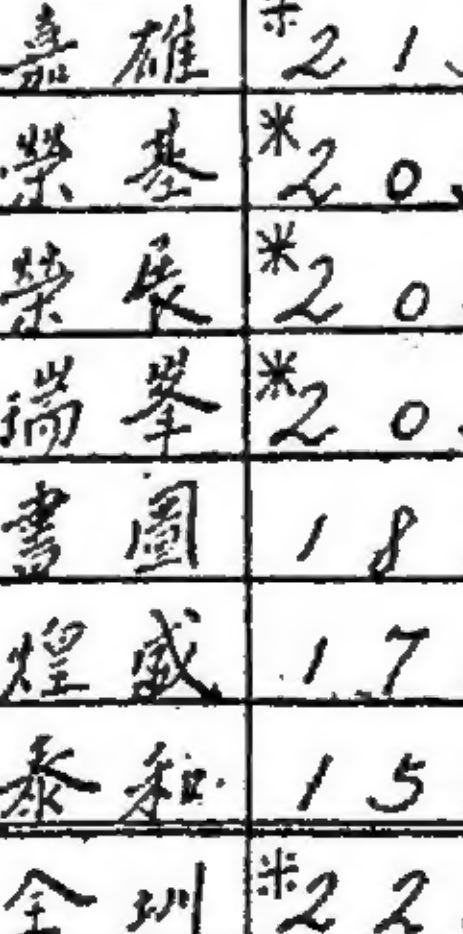 嘉雄 ※21.
榮基 ※20.
榮長 ※20.
瑞峯 ※20.
書圖 18
煌盛 17
泰和 15
金圳 ※22